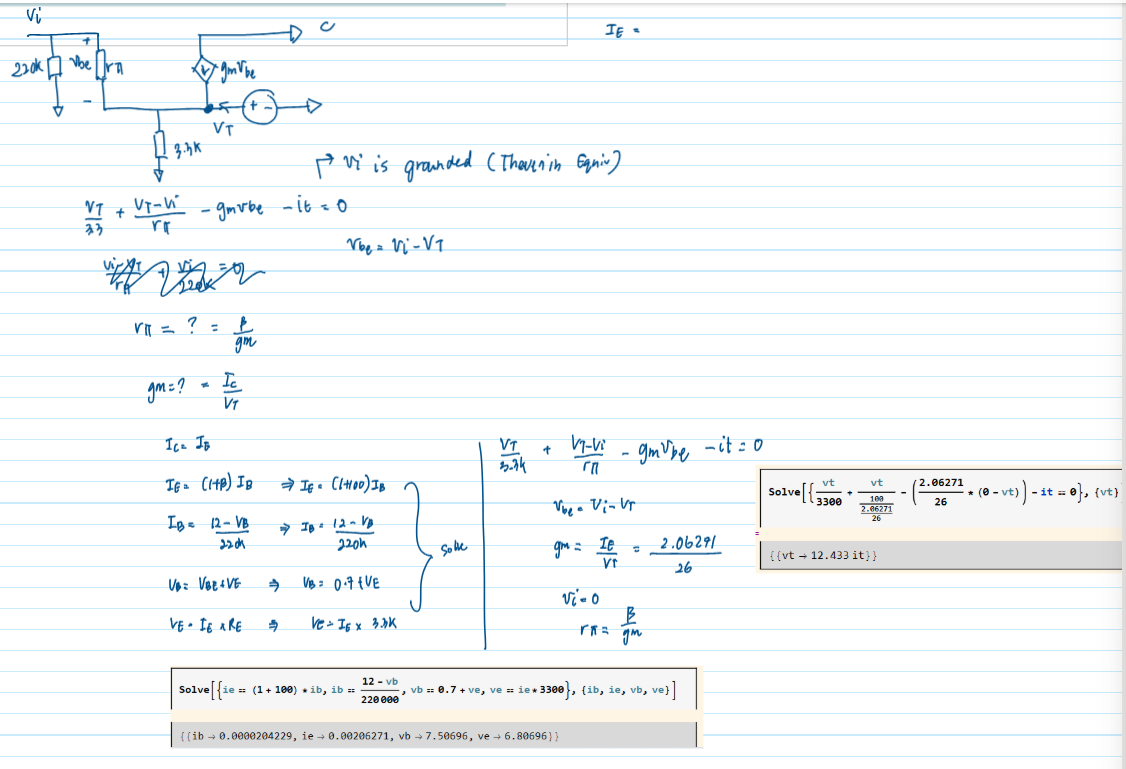 Vi
C
IE =
220k
+
Vbe
-
rπ
gmVbe
+ -
VT
3.3k
Vi is grounded (Thevenin Equiv)
VT/33 + (VT-Vi)/rπ - gmvbe - it = 0
Vbe = Vi - VT
rπ = ? = β/gm
gm = ? = Ic/VT
Ic = IB
IE = (1+β) IB ⇒ IE = (1+100) IB
IB = (12 - VB)/220k ⇒ IB = (12 - VB)/220k
VB = VBE + VE ⇒ VB = 0.7 + VE
VE = IE x RE ⇒ VE = IE x 3.3K
Solve
VT/3.3k + (VT-Vi)/rπ - gmVbe - it = 0
Vbe = Vi - VT
gm = IE/VT = 2.06271/26
Vi = 0
rπ = β/gm
Solve[{vt/3300 + vt/(100/(2.06271/26)) - (2.06271/26 * (0 - vt)) - it == 0}, {vt}
{{vt → 12.433 it}}
Solve[{ie == (1 + 100) * ib, ib == (12 - vb)/220000, vb == 0.7 + ve, ve == ie * 3300}, {ib, ie, vb, ve}]
{{ib → 0.0000204229, ie → 0.00206271, vb → 7.50696, ve → 6.80696}}